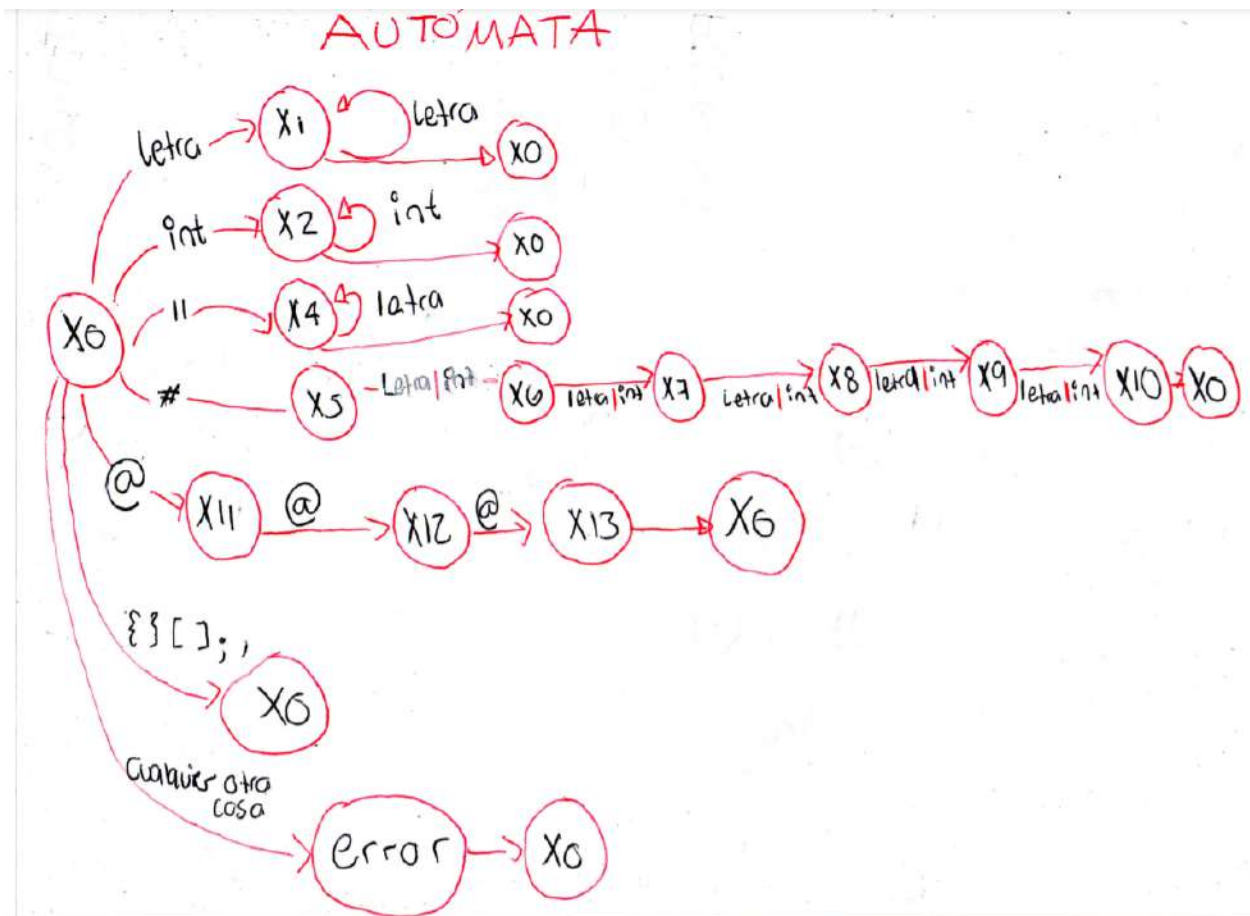 AUTÓMATA
letra X1 letra X0
int X2 int X0
X0
" X4 letra X0
# X5 Letra|int X6 letra|int X7 Letra|int X8 letra|int X9 letra|int X10 X0
@ X11 @ X12 @ X13 X0
{}[];,
X0
Cualquier otra
cosa
error X0